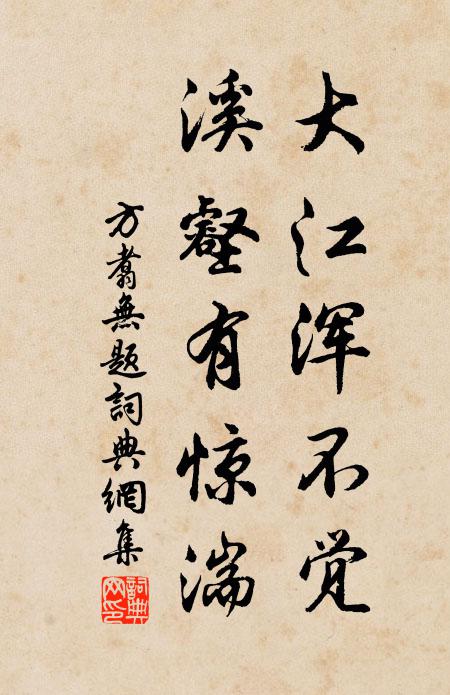 大江浑不觉
溪壑有惊湍
方翥無题詞典網集
詞典网印